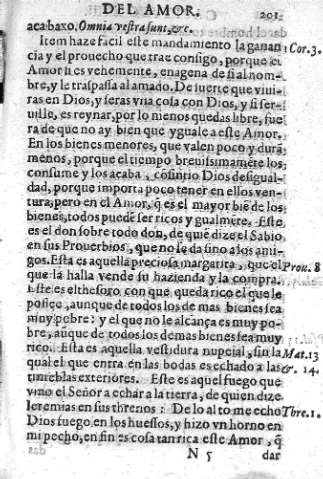 DEL AMOR. 201.
acabaxo. Omnia vestra sunt, &c.
Item haze facil este mandamiento la ganan 1 Cor. 3.
cia y el prouecho que trae consigo, porque el
Amor si es vehemente, enagena de si al nom-
bre, y le traspassa al amado. De suerte que viui-
ras en Dios, y seras vna cosa con Dios, y si ser-
uille, es reynar, por lo menos quedas libre, fue
ra de que no ay bien que yguale a este Amor.
En los bienes menores, que valen poco y durã
menos, porque el tiempo breuissimamẽte los
consume y los acaba, cõsintio Dios desigual-
dad, porque importa poco tener en ellos ven-
tura, pero en el Amor, q̃ es el mayor biẽ de los
bienes, todos puedẽ ser ricos y gualmẽte. Este
es el don sobre todo don, de quiẽ dize el Sabio
en sus Prouerbios, que no le da sino a los ami-
gos. Esta es aquella preciosa margarita, que el Prou. 8
que la halla vende su hazienda y la compra.
Este es el thesoro con que queda rico el que le
possee, aunque de todos los demas bienes sea
muy pobre: y el que no le alcança es muy po-
bre, aũque de todos los demas bienes sea muy
rico. Esta es aquella vestidura nupcial, sin la Mat. 13
qual el que entra en las bodas es echado a las &. 14.
tinieblas exteriores. Este es aquel fuego que
vino el Señor a echar a la tierra, de quien dize
Ieremias en sus threnos: De lo alto me echo Thre. 1.
Dios fuego en los huessos, y hizo vn horno en
mi pecho, en fin es cosa tan rica este Amor, q̃
N 5 dar